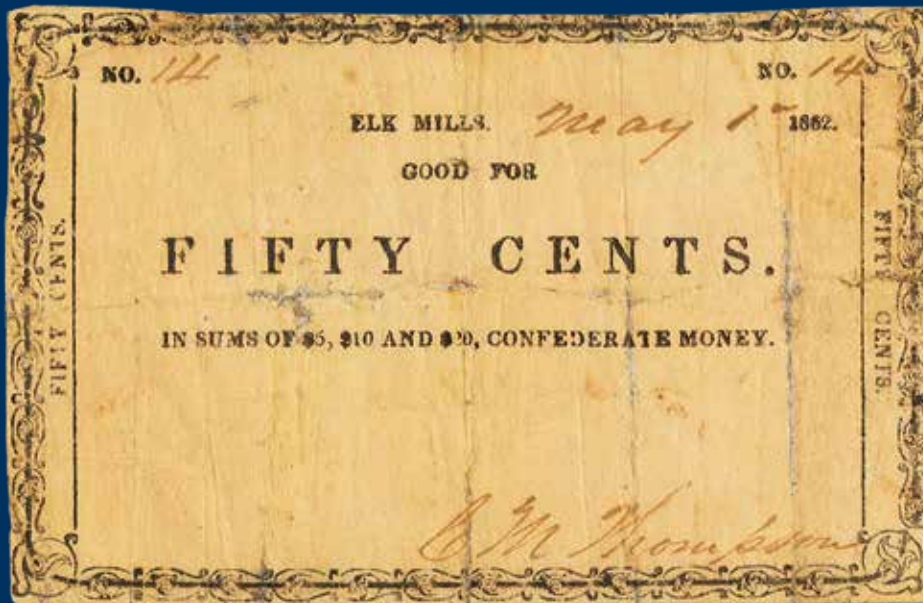 NO. 14 NO. 14
ELK MILLS. May 1st 1862.
GOOD FOR
FIFTY CENTS.
IN SUMS OF $5, $10 AND $20, CONFEDERATE MONEY.
C M Thompson
FIFTY CENTS.
FIFTY CENTS.